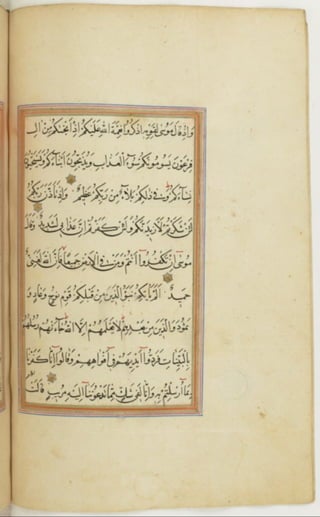 وَاِذْ قَالَ مُوسٰى لِقَوْمِهِ اذْكُرُوا نِعْمَةَ اللّٰهِ عَلَيْكُمْ اِذْ اَنْجٰيكُمْ مِنْ اٰلِ
فِرْعَوْنَ يَسُومُونَكُمْ سُوءَ الْعَذَابِ وَيُذَبِّحُونَ اَبْنَاءَكُمْ وَيَسْتَحْيُونَ
نِسَاءَكُمْ وَفِي ذٰلِكُمْ بَلَاءٌ مِنْ رَبِّكُمْ عَظِيمٌ وَاِذْ تَاَذَّنَ رَبُّكُمْ
لَئِنْ شَكَرْتُمْ لَاَزِيدَنَّكُمْ وَلَئِنْ كَفَرْتُمْ اِنَّ عَذَابِي لَشَدِيدٌ وَقَالَ
مُوسٰى اِنْ تَكْفُرُوا اَنْتُمْ وَمَنْ فِي الْاَرْضِ جَمِيعًا فَاِنَّ اللّٰهَ لَغَنِيٌّ
حَمِيدٌ اَلَمْ يَاْتِكُمْ نَبَؤُا الَّذِينَ مِنْ قَبْلِكُمْ قَوْمِ نُوحٍ وَعَادٍ وَ
ثَمُودَ وَالَّذِينَ مِنْ بَعْدِهِمْ لَا يَعْلَمُهُمْ اِلَّا اللّٰهُ جَاءَتْهُمْ رُسُلُهُمْ
بِالْبَيِّنَاتِ فَرَدُّوا اَيْدِيَهُمْ فِي اَفْوَاهِهِمْ وَقَالُوا اِنَّا كَفَرْنَا
بِمَا اُرْسِلْتُمْ بِهِ وَاِنَّا لَفِي شَكٍّ مِمَّا تَدْعُونَنَا اِلَيْهِ مُرِيبٍ قَالَتْ